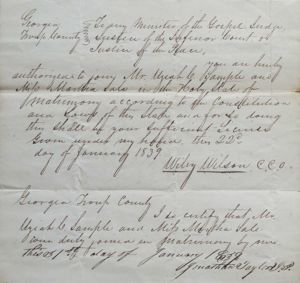 Georgia To any Minister of the Gospel, Judge,
Troup County Justice of the Inferior Court or
Justice of the Peace,
you are hereby
authorized to join Mr. Uriah C. Sample and
Miss Martha Sale in the Holy state of
Matrimony according to the Constitution
and Laws of this State and for so doing
this shall be your sufficient License
Given under my hand this 22d
day of January 1839
Wiley Wilson C.C.O.
Georgia Troup County
I do certify that Mr.
Uriah C. Sample and Miss Martha Sale
were duly joined in matrimony by me
this day of January 1839
Jonathan Taylor J.P.